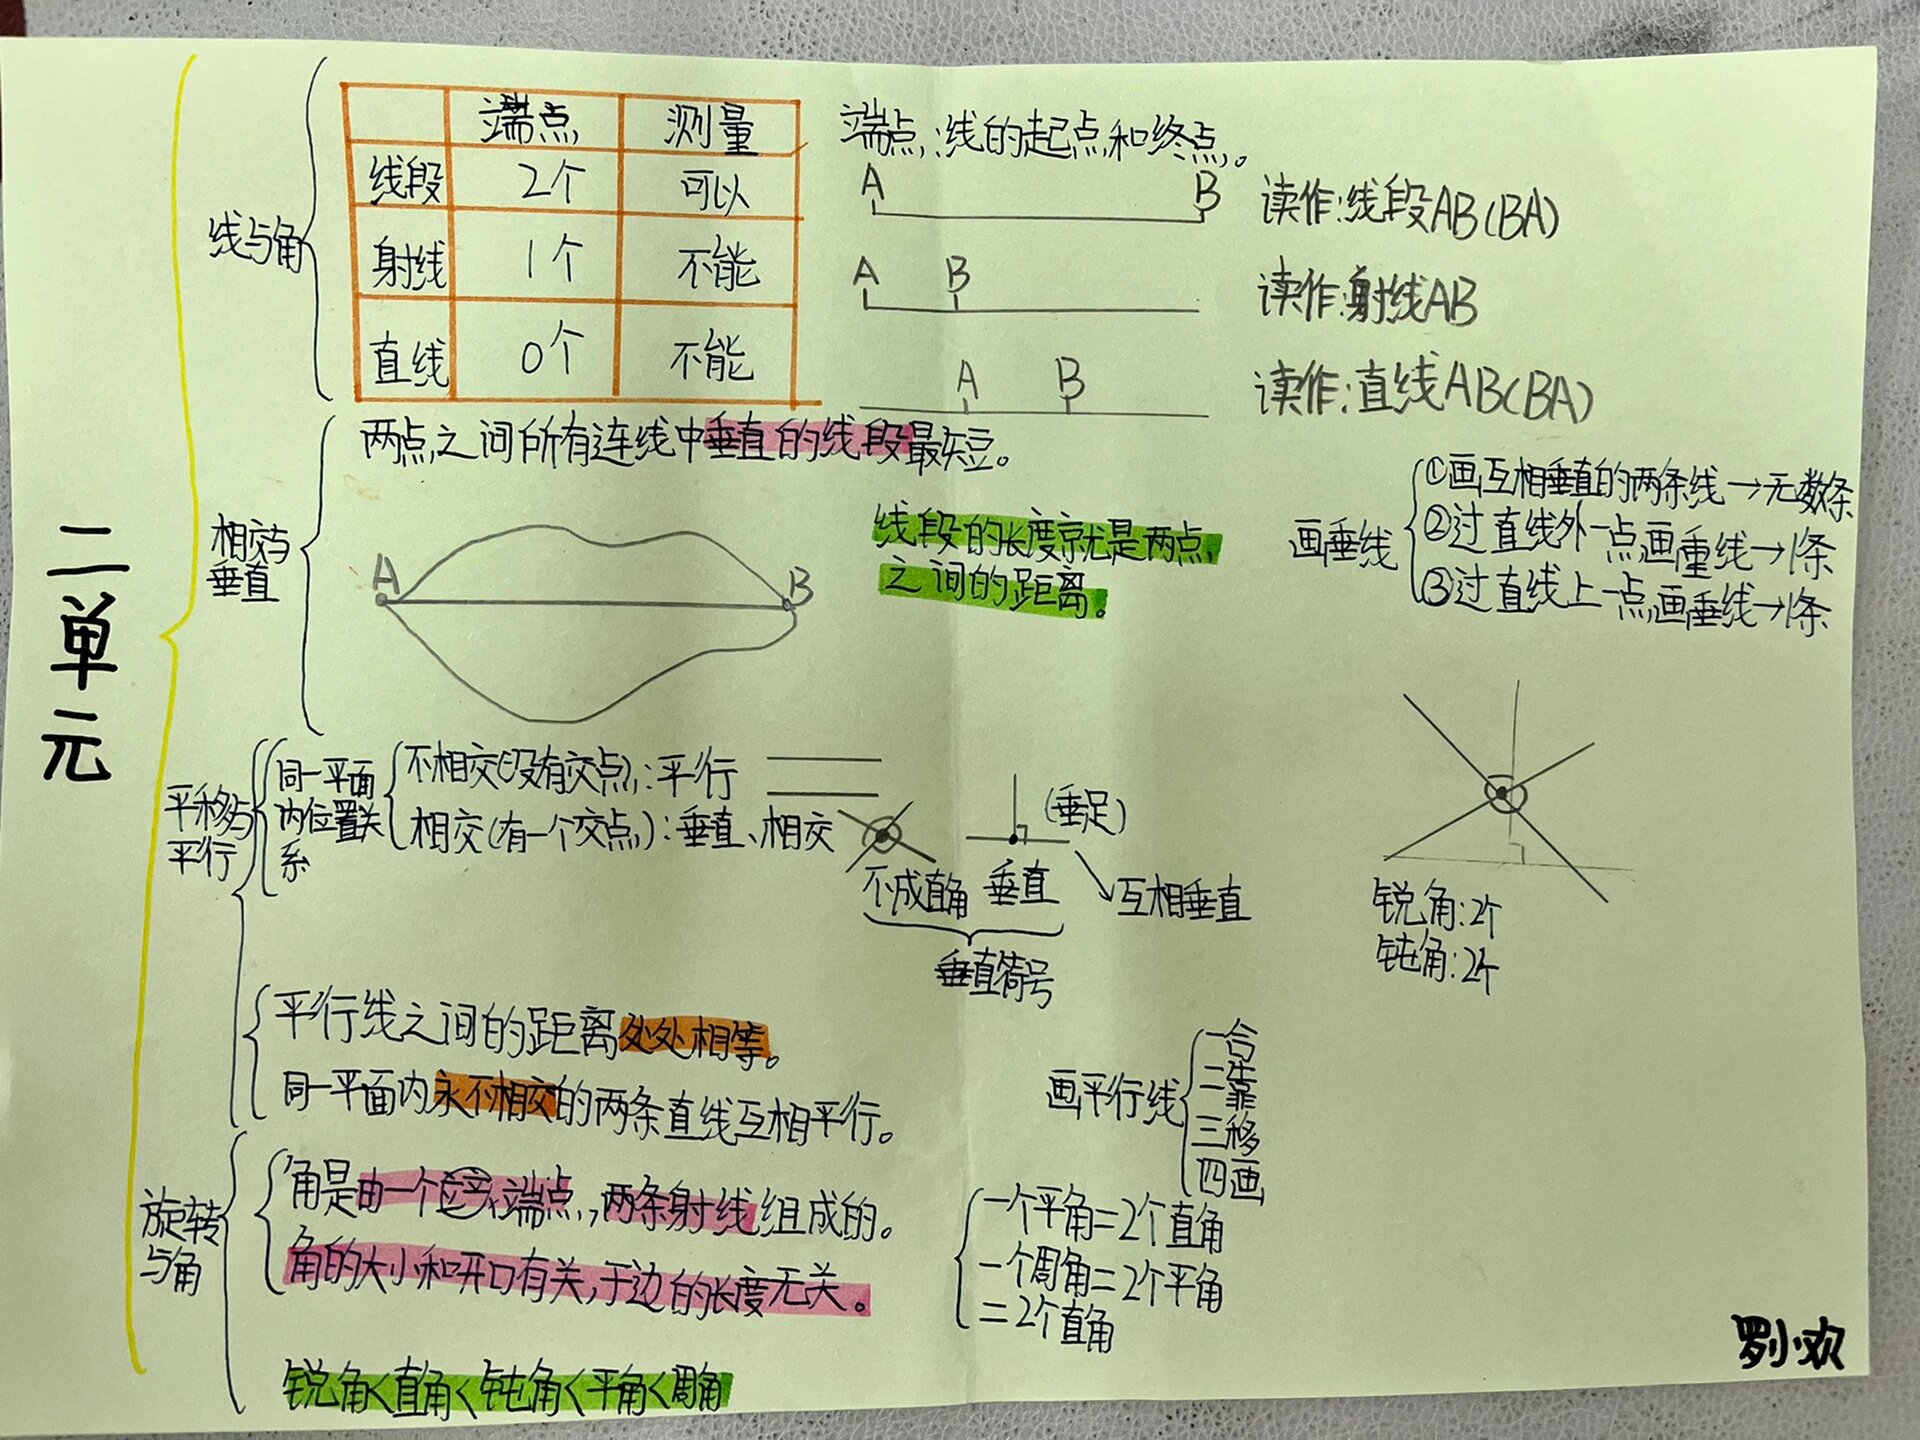 二单元
线与角
端点 测量
线段 2个 可以
射线 1个 不能
直线 0个 不能
端点:线的起点和终点。
A B 读作:线段AB(BA)
A B 读作:射线AB
A B 读作:直线AB(BA)
相交与
垂直
两点之间所有连线中垂直的线段最短。
A B
线段的长度就是两点
之间的距离。
画垂线
①画互相垂直的两条线→无数条
②过直线外一点画垂线→1条
③过直线上一点画垂线→1条
平移与
平行
同一平面
内位置关
系
不相交(没有交点):平行
相交(有一个交点):垂直、相交
(垂足)
不成直角 垂直
互相垂直
垂直符号
锐角:2个
钝角:2个
平行线之间的距离处处相等。
同一平面内永不相交的两条直线互相平行。
画平行线
一合
二靠
三移
四画
旋转
与角
角是由一个端点,两条射线组成的。
角的大小和开口有关,于边的长度无关。
一个平角=2个直角
一个周角=2个平角
=2个直角
锐角<直角<钝角<平角<周角
罗小欢